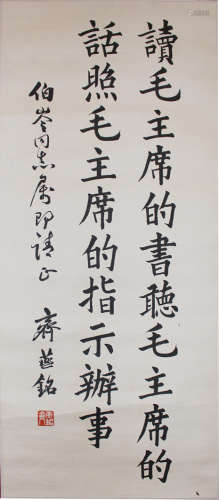 讀毛主席的書聽毛主席的
話照毛主席的指示辦事
伯岑同志属即請正
齊燕銘